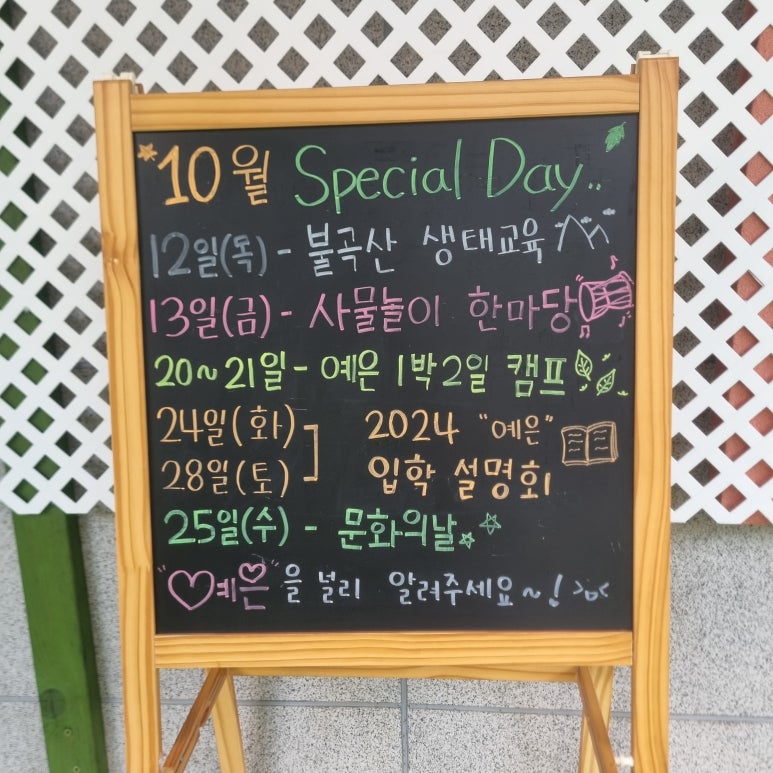 10월 Special Day..
12일(목) - 불곡산 생태교육
13일(금) - 사물놀이 한마당
20~21일 - 예은 1박2일 캠프
24일(화)
28일(토)] 2024 "예은"
입학 설명회
25일(수) - 문화의날
"♡예은"을 널리 알려주세요~! >.<